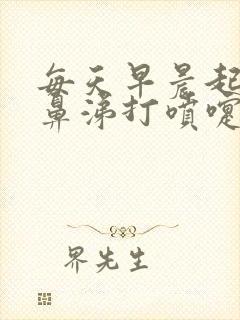 每天早晨起
鼻涕打噴嚏
界先生